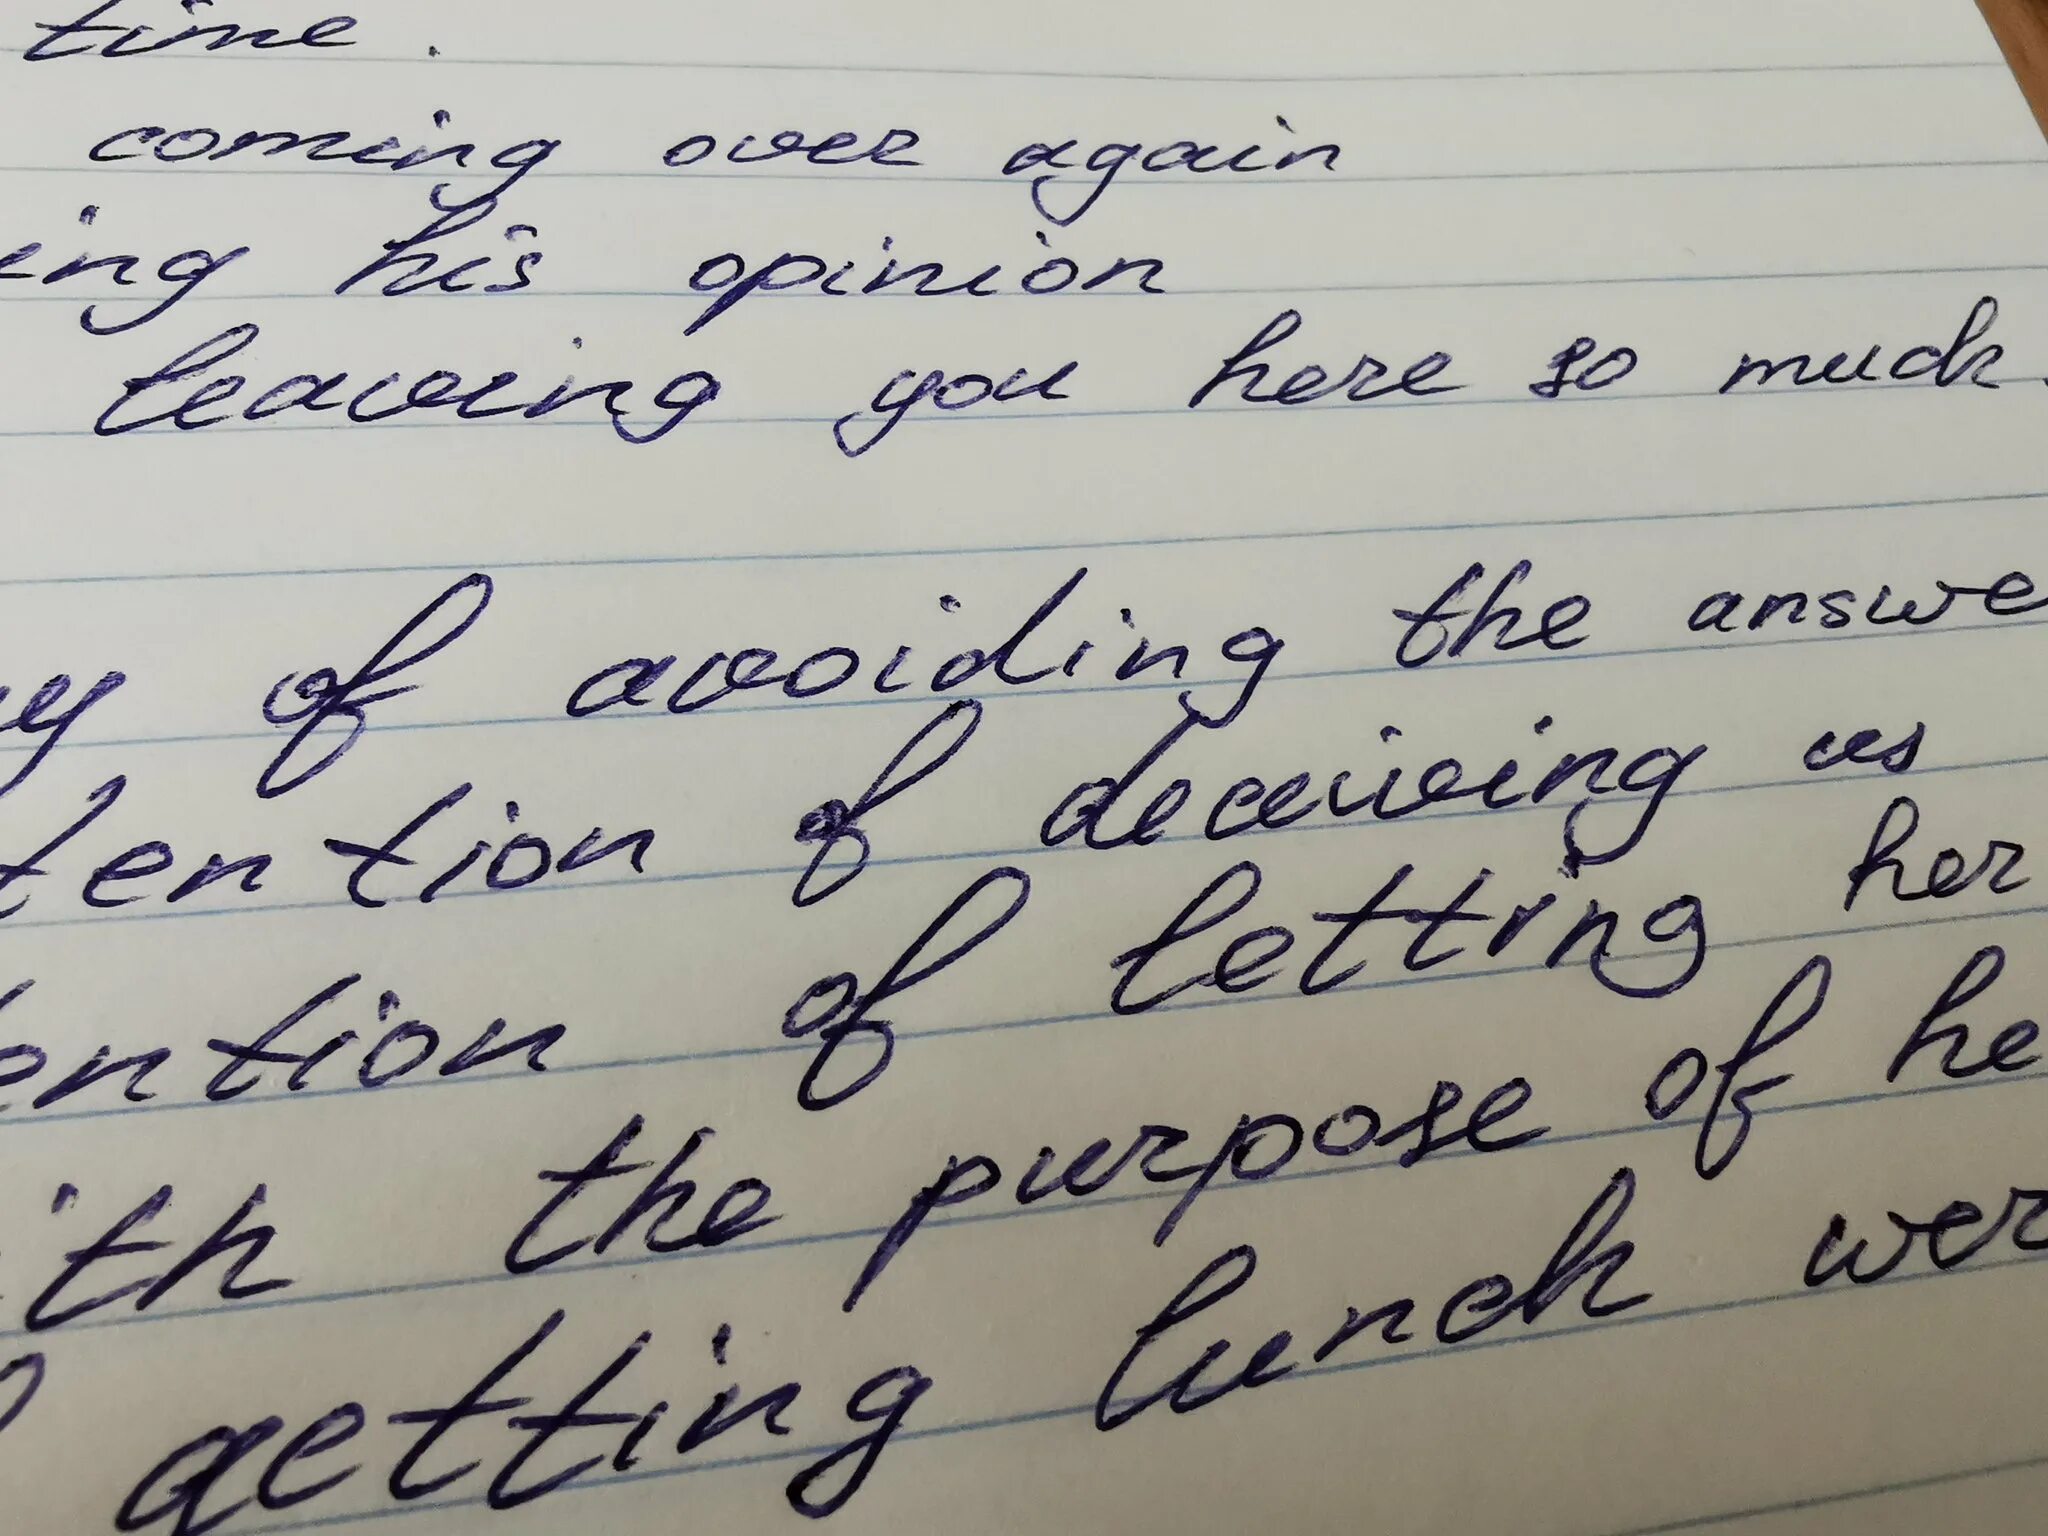 time.
coming over again
ing his opinion
leaving you here so much.
y of avoiding the answe
tention of deceiving us
ention of letting her
ith the purpose of he
getting lunch wer